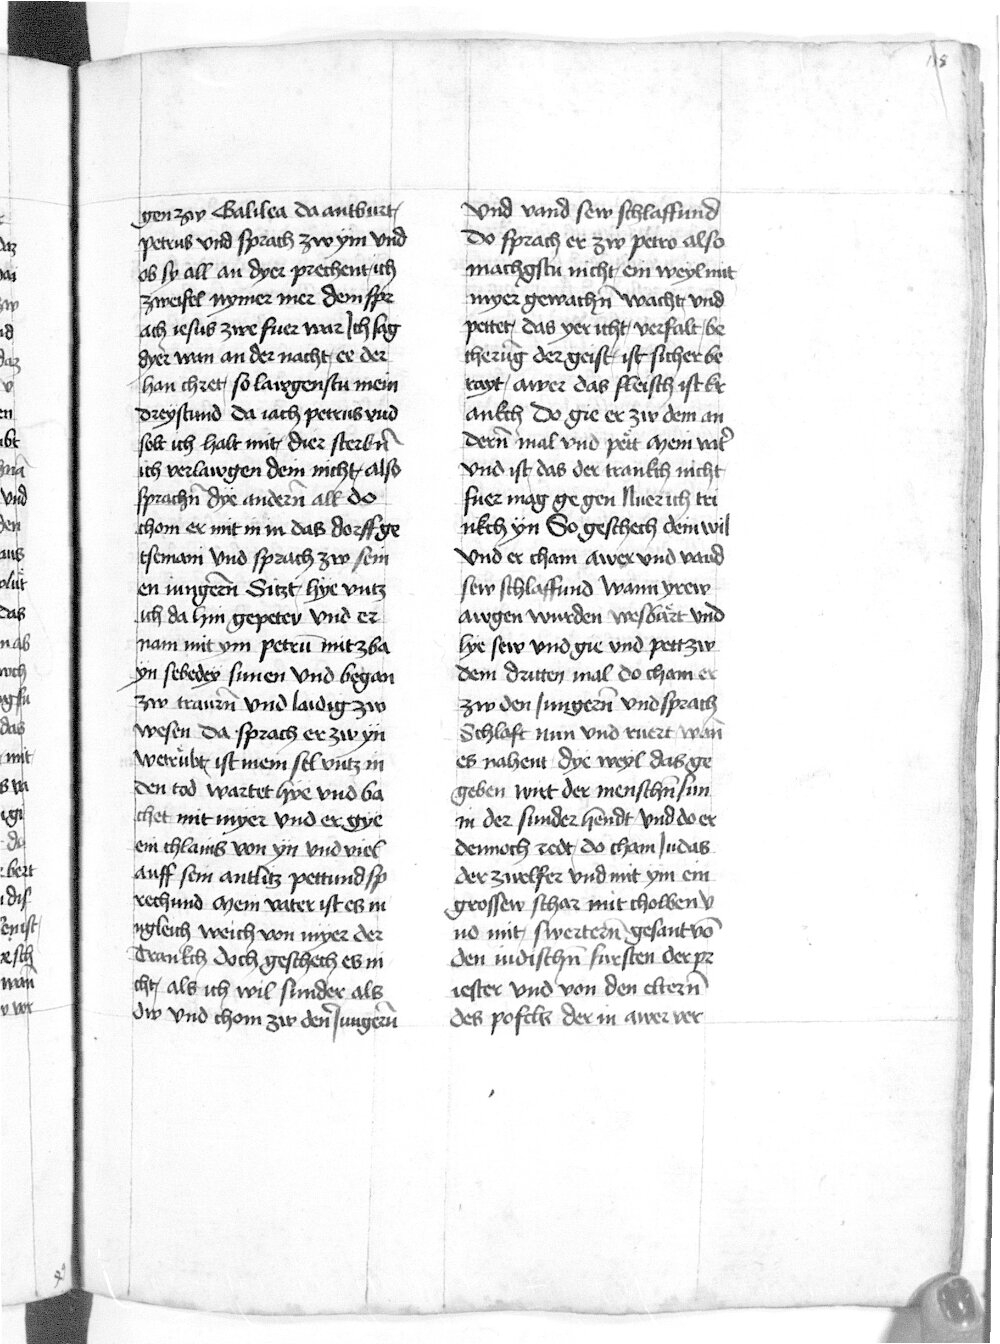 118
gen zw Galilea da antburt
petrus vnd sprach zw ym vnd
ob sy all an dyer prechent ich
zweifel nymer mer dem spr
ach iesus zwe fuer war Ich sag
dyer wan an der nacht ee der
han chret so lawgenstu mein
dreystund da iach petrus vnd
solt ich halt mit dier sterbn̄
ich verlawgen dein nicht also
sprachn̄ dye andern̄ all do
chom er mit in in das dorff ge
tsemani vnd sprach zw sein
en iungern̄ Sitzt hye vntz
ich da hin gepetey vnd er
nam mit ym petrū mit zba
yn sebedey sunen vnd began
zw traurn̄ vnd laidig zw
wesen Da sprach er zw yn
Wetrůbt ist mein sel vntz in
den tod wartet hye vnd ba
chet mit myer vnd er gye
ein chlains von yn vnd viel
auff sein antlitz pettund sp
rechund Mein vater ist es m
ugleich weich von myer der
Trankch doch geschech es ni
cht als ich wil sunder als
dw vnd chom zw den̄ Iungern̄
Vnd vand sew schlaffund
Do sprach er zw petro also
machgstu nicht ein weyl mit
myer gewachn̄ Wacht vnd
pettet das yer icht verfalt be
cherūg der geist ist sicher be
rayt awer das fleisch ist kr
ankch Do gie er zw dem an
dern̄ mal vnd pett Mein vat̄
vnd ist das der trankch nicht
fuer mag ge gen Nuer ich tri
nkch yn So geschech dein wil
Vnd er cham awer vnd vand
sew schlaffund Wann yrew
awgen wurden wesbärt vnd
lye sew vnd gie vnd pett zw
dem dritten mal do cham er
zw den Iungern̄ vnd sprach
Schlaft nun vnd ruert wan̄
es nahent dye weyl das ge
geben wirt der menschn̄ sun
in der sunder hendt Vnd do er
dennoch redt do cham Iudas
der zwelfer vnd mit ym ein
grossew schar mit cholben v
nd mit swertern̄ gesant vō
den iudischn̄ fursten der pr
iester vnd von den eltern̄
des pofels der in awer ver